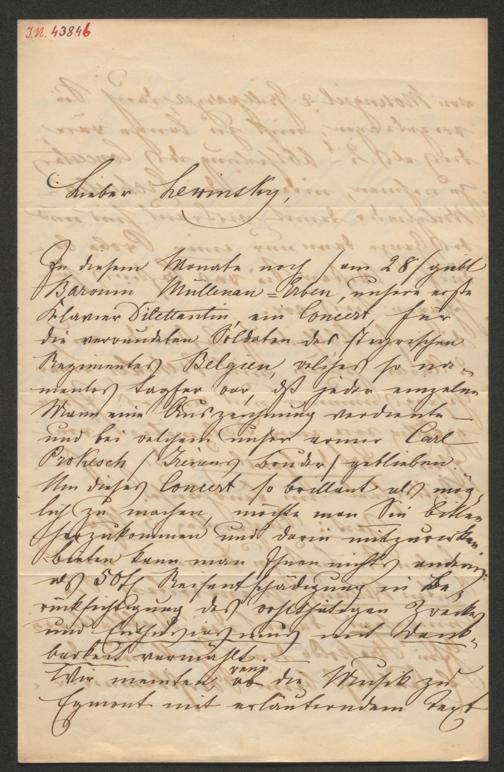 I.N. 43846
Lieber Lewinsky,
In diesem Monate noch / am 28 / gibt
Baronin Müllenau-Erben, unsere erste
Klavier Dilettantin, ein Concert für
die verwundeten Soldaten des steyrischen
Regimentes Belgien, welches so
tapfer war, dß jeder einzelne
Mann eine Auszeichnung verdiente
und bei welchem unser armer Carl
Prokesch / Irenens Bruder / geblieben.
Um dieses Concert so brillant als mög-
lich zu machen, möchte man Sie bitten
herzukommen und darin mitzuwirken,
bieten kann man Ihnen nichts anderes
als 50 fl Reiseentschädigung in Be-
rücksichtigung des wohlthätigen Zweckes
und Enthusiasmus mit Dank-
barkeit vermählt.
Wir meinten die Musik zu
Egmont mit erläuterndem Text